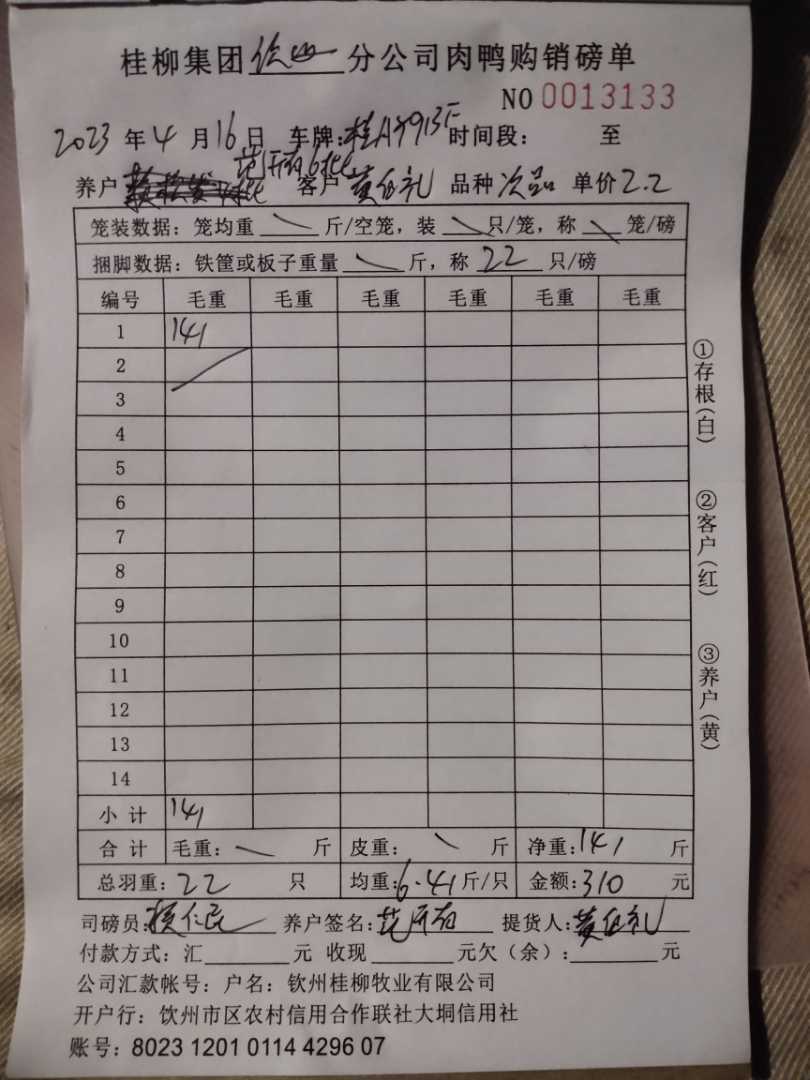 桂柳集团 分公司肉鸭购销磅单
NO 0013133
2023 年 4 月 16 日 车牌: 时间段: 至
养户 客户 黄伍礼 品种 次品 单价 2.2
笼装数据: 笼均重 斤/空笼, 装 只/笼, 称 笼/磅
捆脚数据: 铁筐或板子重量 斤, 称 22 只/磅
编号 毛重 毛重 毛重 毛重 毛重 毛重
1 141
2
3
4
5
6
7
8
9
10
11
12
13
14
小计 141
合计 毛重: 斤 皮重: 斤 净重: 141 斤
总羽重: 22 只 均重: 6.41 斤/只 金额: 310 元
司磅员: 养户签名: 提货人: 黄伍礼
付款方式: 汇 元 收现 元欠(余): 元
公司汇款帐号: 户名: 钦州桂柳牧业有限公司
开户行: 饮州市区农村信用合作联社大垌信用社
账号: 8023 1201 0114 4296 07
①存根(白)
②客户(红)
③养户(黄)